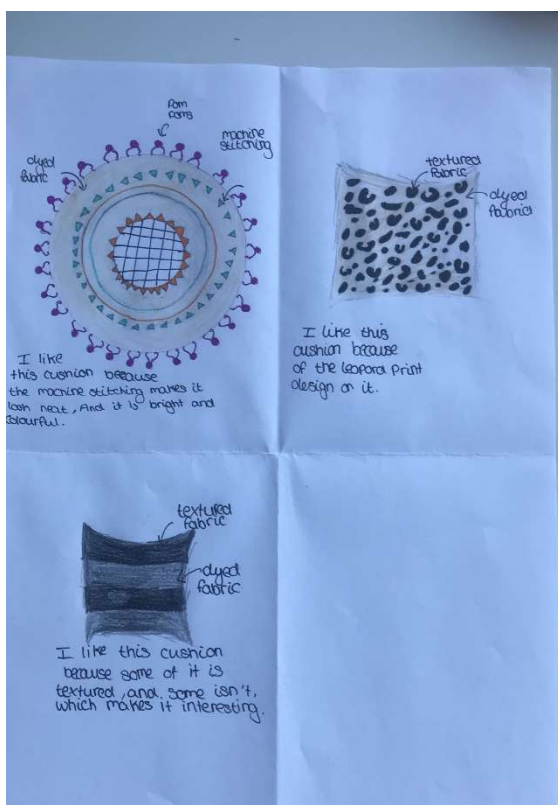 Pom
Poms
machine
stitching
dyed
fabric
I like
this cushion because
the machine stitching makes it
look neat, And it is bright and
colourful.
textured
fabric
dyed
fabric
I like this
cushion because
of the leopard print
design on it.
textured
fabric
dyed
fabric
I like this cushion
because some of it is
textured, and some isn't,
which makes it interesting.